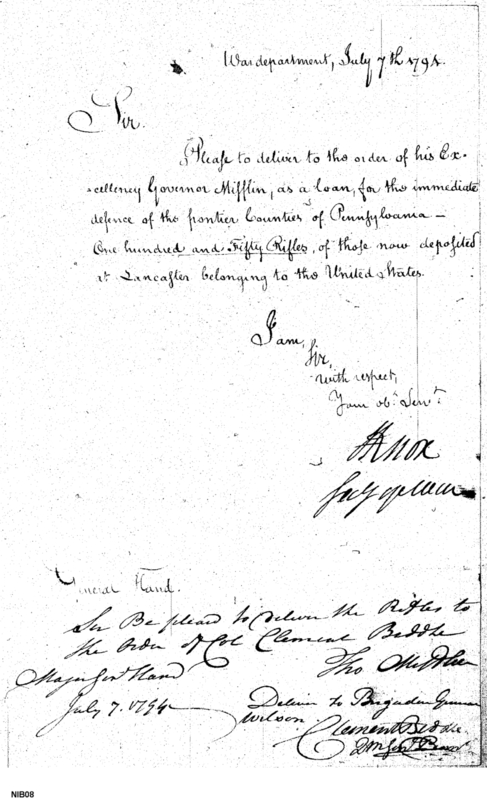 War department, July 7th 1794.
Sir.
Please to deliver to the order of his Ex-
-cellency Governor Mifflin, as a loan, for the immediate
defence of the frontier Counties of Pennsylvania —
One hundred and Fifty Rifles, of those now deposited
at Lancaster belonging to the United States.
I am,
Sir,
with respect,
Your obt. Servt.
HKnox
Secy of War
General Hand.
Sir Be pleasd to Deliver the Rifles to
the Order of Col Clement Biddle
Tho Mifflin
Major Genl Hand
July 7. 1794
Deliver to Brigadier General
Wilson
Clement Biddle
NIB08